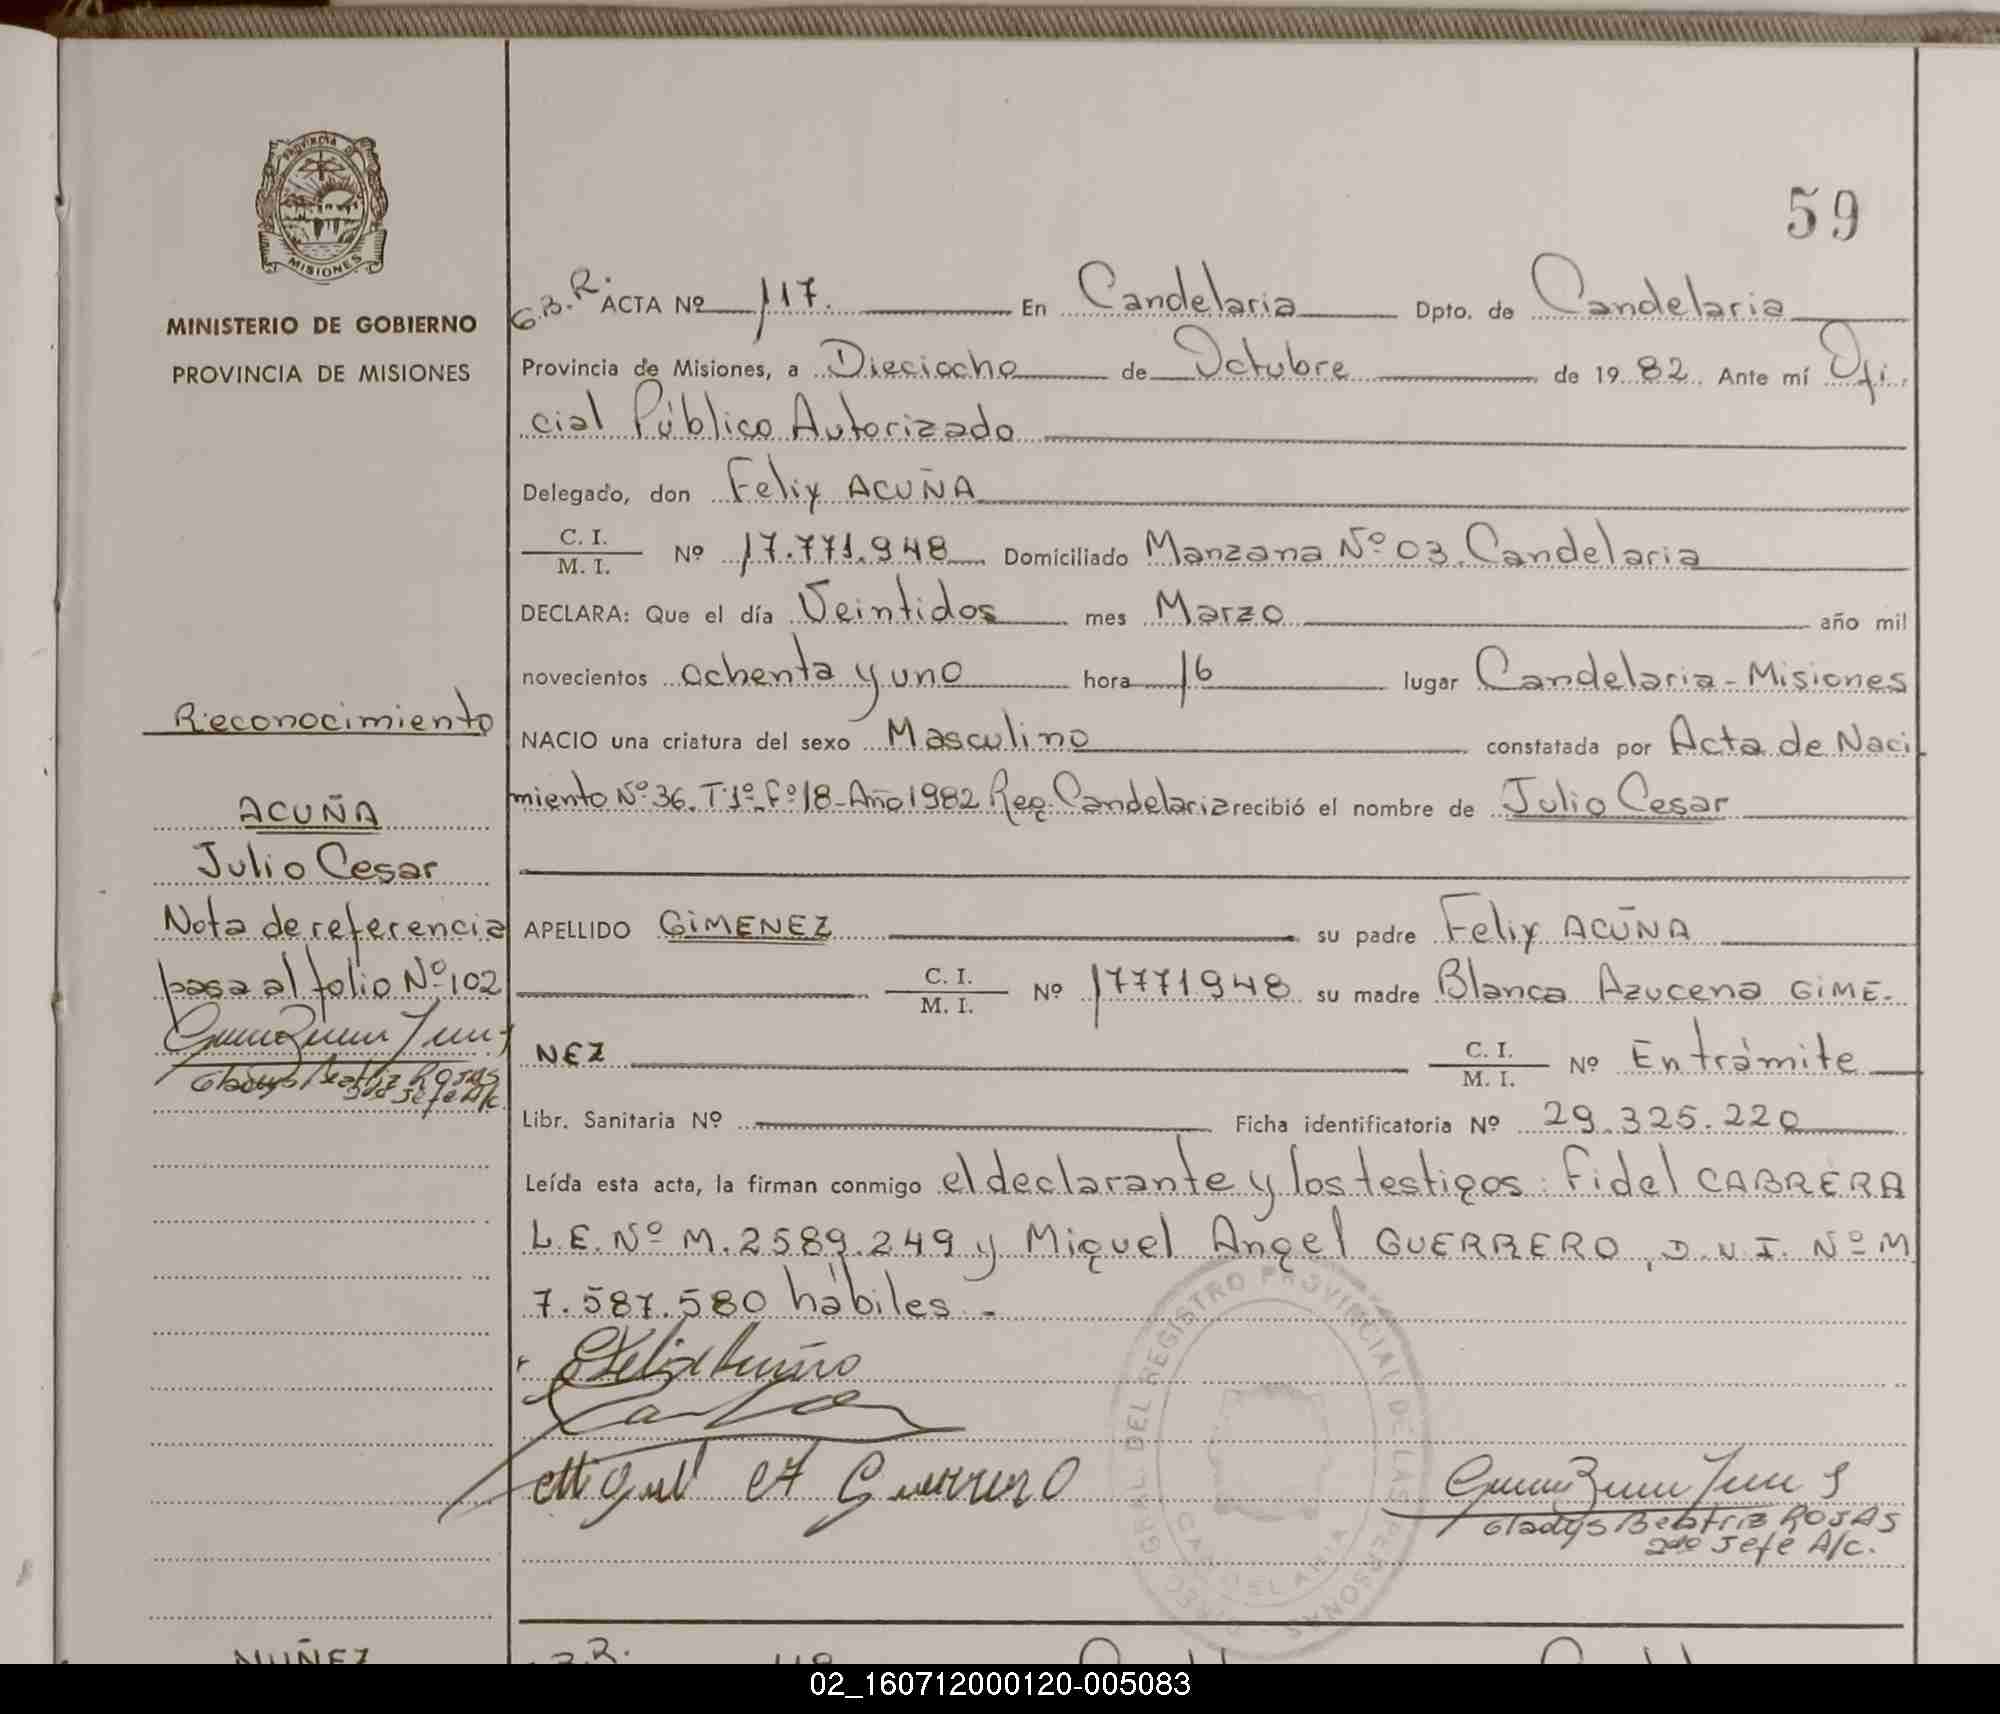 PROVINCIA DE
MISIONES
MINISTERIO DE GOBIERNO
PROVINCIA DE MISIONES
Reconocimiento
ACUÑA
Julio Cesar
Nota de referencia
pasa al folio Nº 102
Gladys Beatriz ROJAS
2do Jefe A/c.
59
G.B.R. ACTA Nº 117. En Candelaria Dpto. de Candelaria
Provincia de Misiones, a Dieciocho de Octubre de 19 82. Ante mí Ofi
cial Público Autorizado
Delegado, don Felix ACUÑA
C. I.
M. I. Nº 17.771.948 Domiciliado Manzana Nº 03. Candelaria
DECLARA: Que el día Veintidos mes Marzo año mil
novecientos ochenta y uno hora 16 lugar Candelaria - Misiones
NACIO una criatura del sexo Masculino constatada por Acta de Naci
miento Nº 36. T:1º. Fº 18 - Año 1982 Reg. Candelaria recibió el nombre de Julio Cesar
APELLIDO GIMENEZ su padre Felix ACUÑA
C. I.
M. I. Nº 17771948 su madre Blanca Azucena GIME-
NEZ C. I.
M. I. Nº En trámite
Libr. Sanitaria Nº Ficha identificatoria Nº 29.325.220
Leída esta acta, la firman conmigo el declarante y los testigos: Fidel CABRERA
L.E. Nº M. 2589.249 y Miguel Angel GUERRERO, D.N.I. Nº M
7.587.580 hábiles -
Felix Acuña
Miguel A Guerrero
Gladys Beatriz ROJAS
2do Jefe A/c.
DIREC. GRAL. DEL REGISTRO PROVINCIAL DE LAS PERSONAS
CANDELARIA
NUÑEZ
02_160712000120-005083